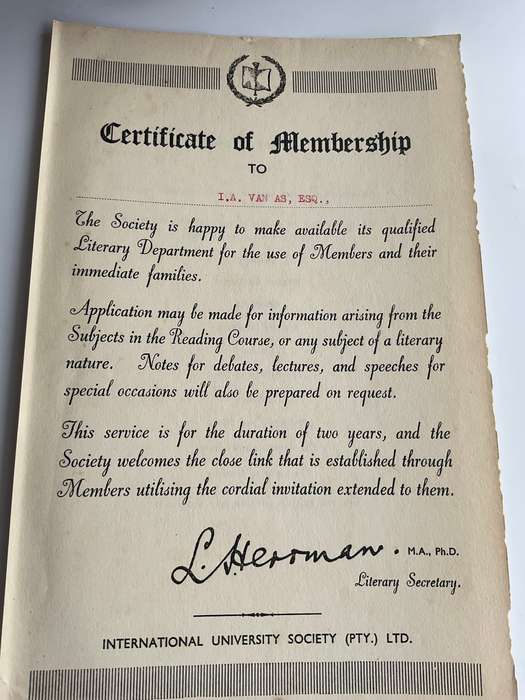 Certificate of Membership
TO
I.A. VAN AS, ESQ.,
The Society is happy to make available its qualified
Literary Department for the use of Members and their
immediate families.
Application may be made for information arising from the
Subjects in the Reading Course, or any subject of a literary
nature. Notes for debates, lectures, and speeches for
special occasions will also be prepared on request.
This service is for the duration of two years, and the
Society welcomes the close link that is established through
Members utilising the cordial invitation extended to them.
L. Herrman. M.A., Ph.D.
Literary Secretary.
INTERNATIONAL UNIVERSITY SOCIETY (PTY.) LTD.